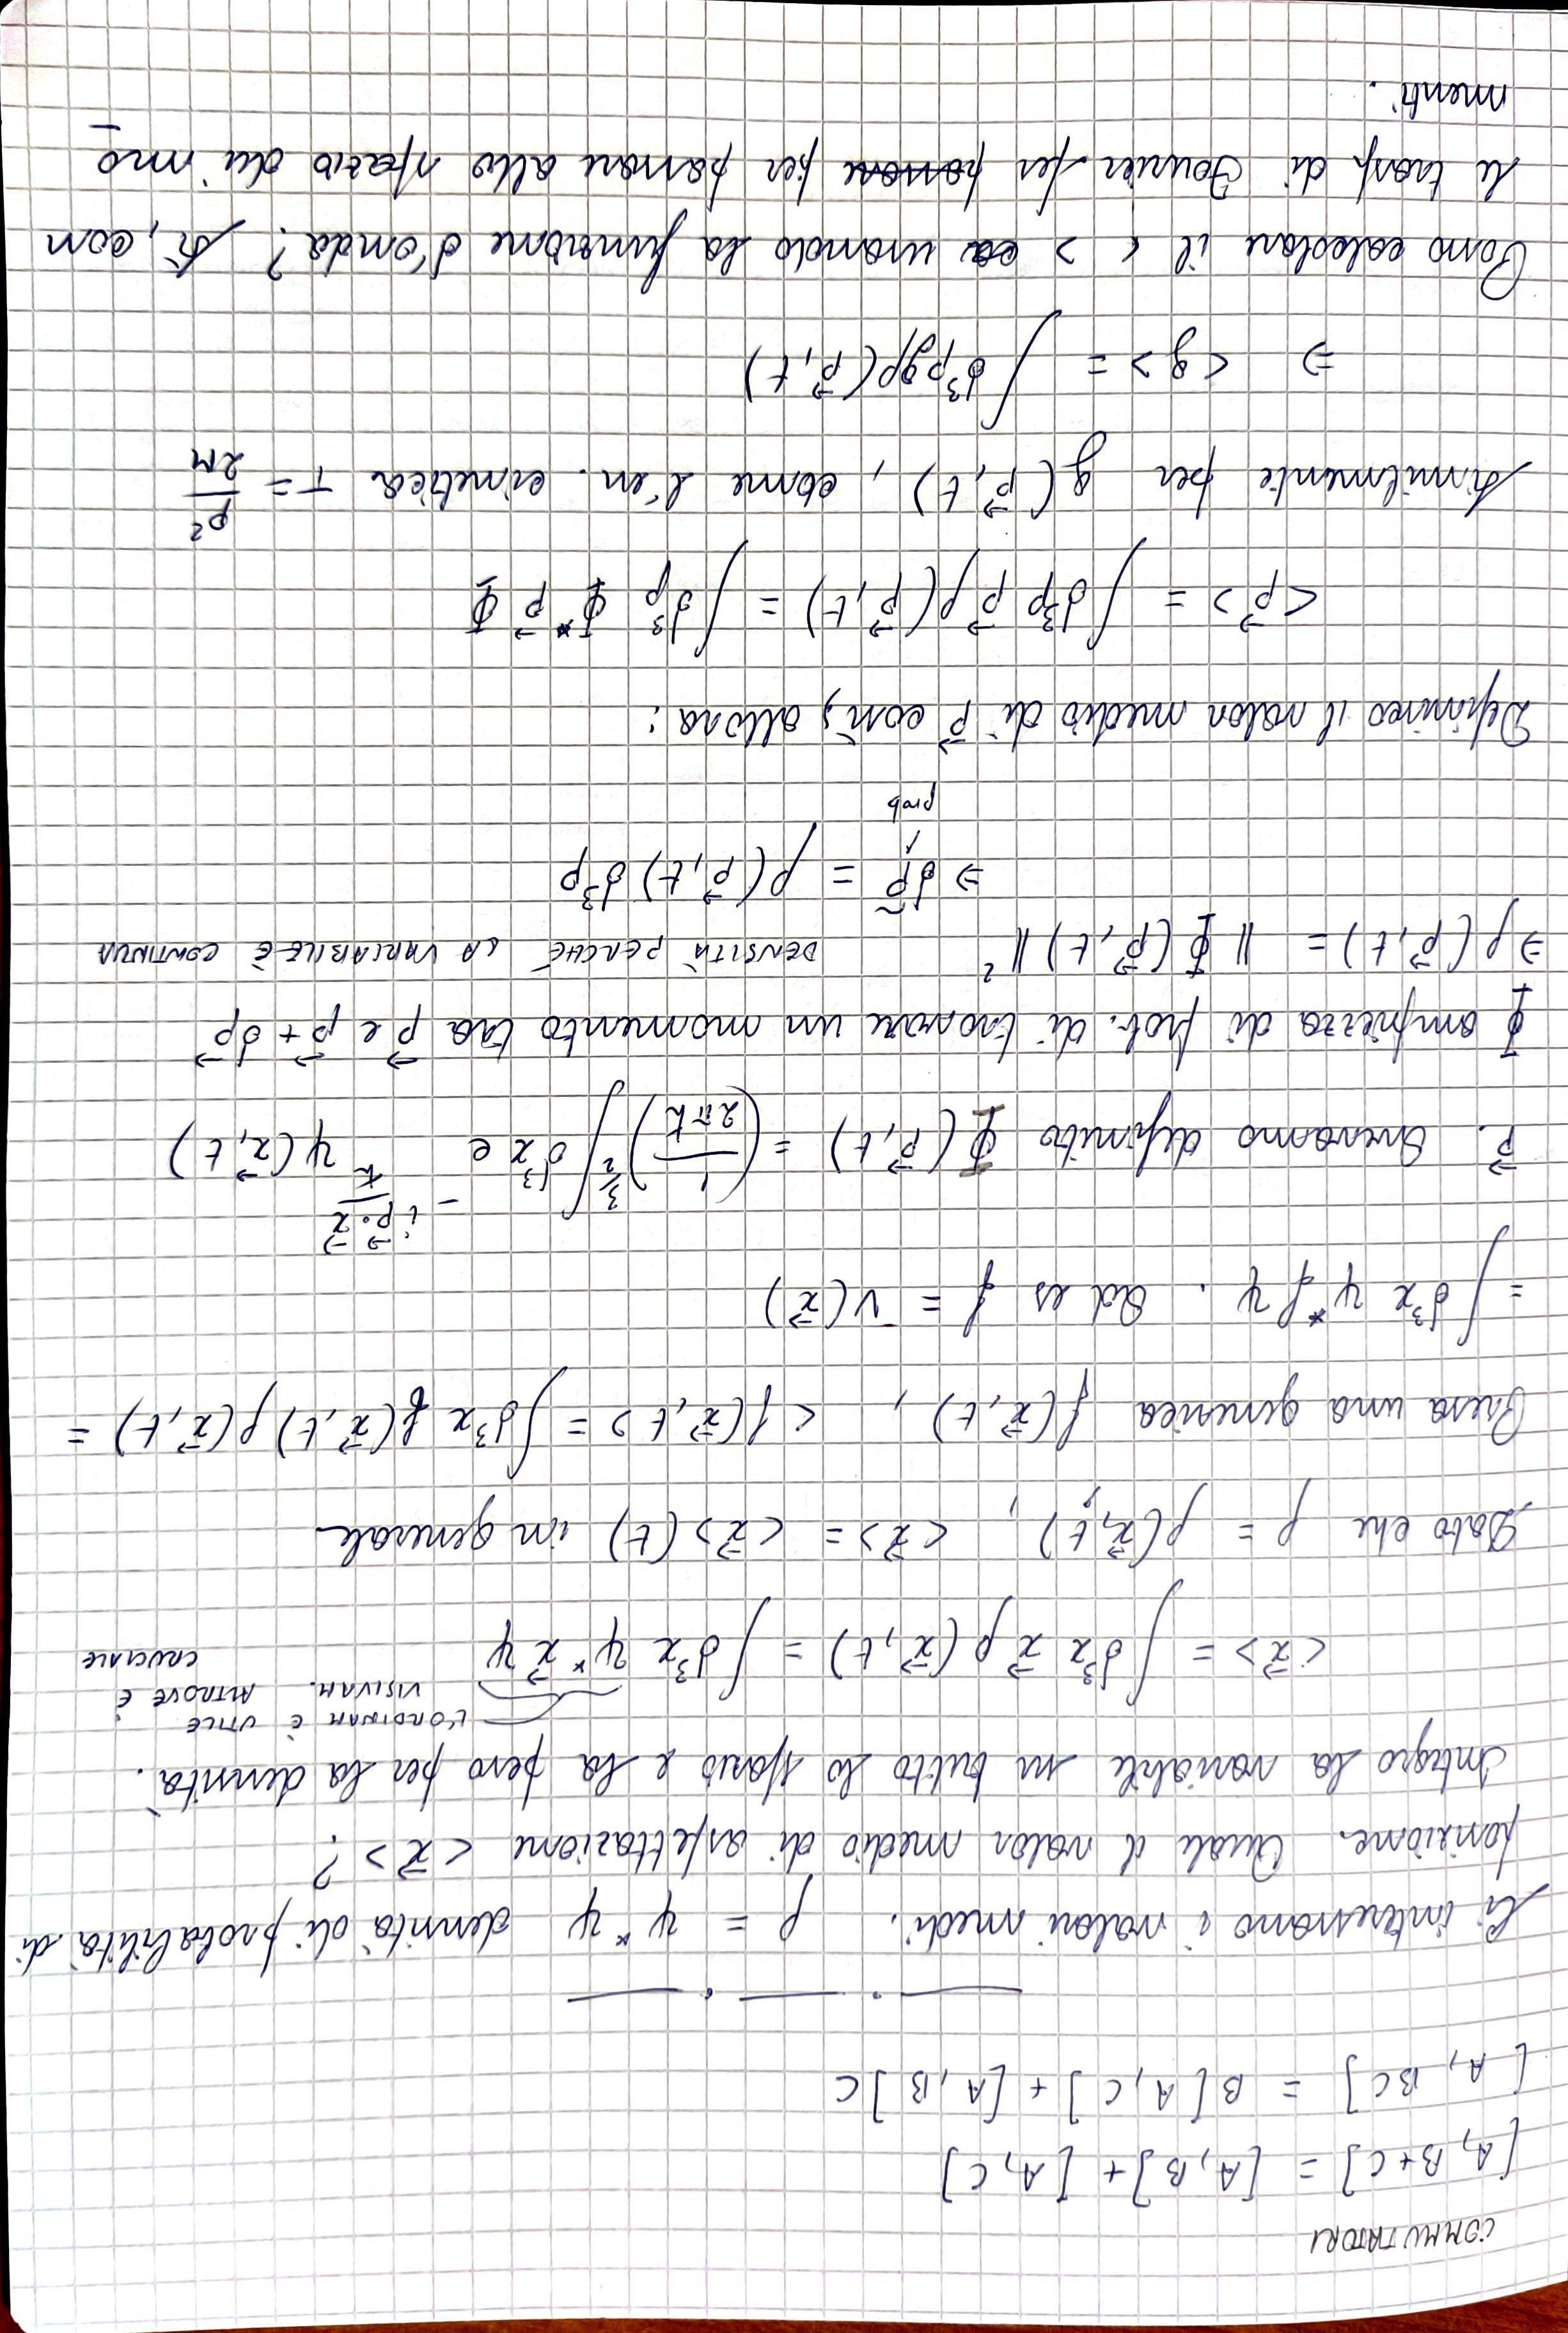 COMMUTATORI
[A, B+C] = [A, B] + [A, C]
[A, BC] = B[A, C] + [A, B]C
Ci interessano i valori medi. ρ = ψ* ψ densità di probabilità di
posizione. Quale il valor medio di aspettazione <x⃗> ?
Integro la variabile su tutto lo spazio e la peso per la densità.
L'ORDINAM È UTILE
VISIVAM. ALTROVE È
CRUCIALE
<x⃗> = ∫d³x x⃗ ρ(x⃗,t) = ∫d³x ψ* x⃗ ψ
Dato che ρ = ρ(x⃗,t), <x⃗> = <x⃗>(t) in generale
Presa una generica f(x⃗,t), <f(x⃗,t)> = ∫d³x f(x⃗,t) ρ(x⃗,t) =
= ∫d³x ψ* f ψ. Ad es f = V(x⃗)
p⃗. Avevamo definito Φ(p⃗,t) = (1/2πℏ)^3/2 ∫d³x e^-i p⃗·x⃗/ℏ ψ(x⃗,t)
Φ ampiezza di prob. di trovare un momento tra p⃗ e p⃗ + dp⃗
⇒ ρ(p⃗,t) = ||Φ(p⃗,t)||² DENSITÀ PERCHÉ LA VARIABILE È CONTINUA
⇒ dp̃ = ρ(p⃗,t) d³p
prob
Definisco il valor medio di p⃗ così, allora:
<p⃗> = ∫d³p p⃗ ρ(p⃗,t) = ∫d³p Φ* p⃗ Φ
Similmente per g(p⃗,t), come l'en. cinetica T = p²/2M
⇒ <g> = ∫d³p gρ(p⃗,t)
Posso calcolare il < > usando la funzione d'onda? Sì, con
le trasf. di Fourier per passare per passare allo spazio dei mo
menti.